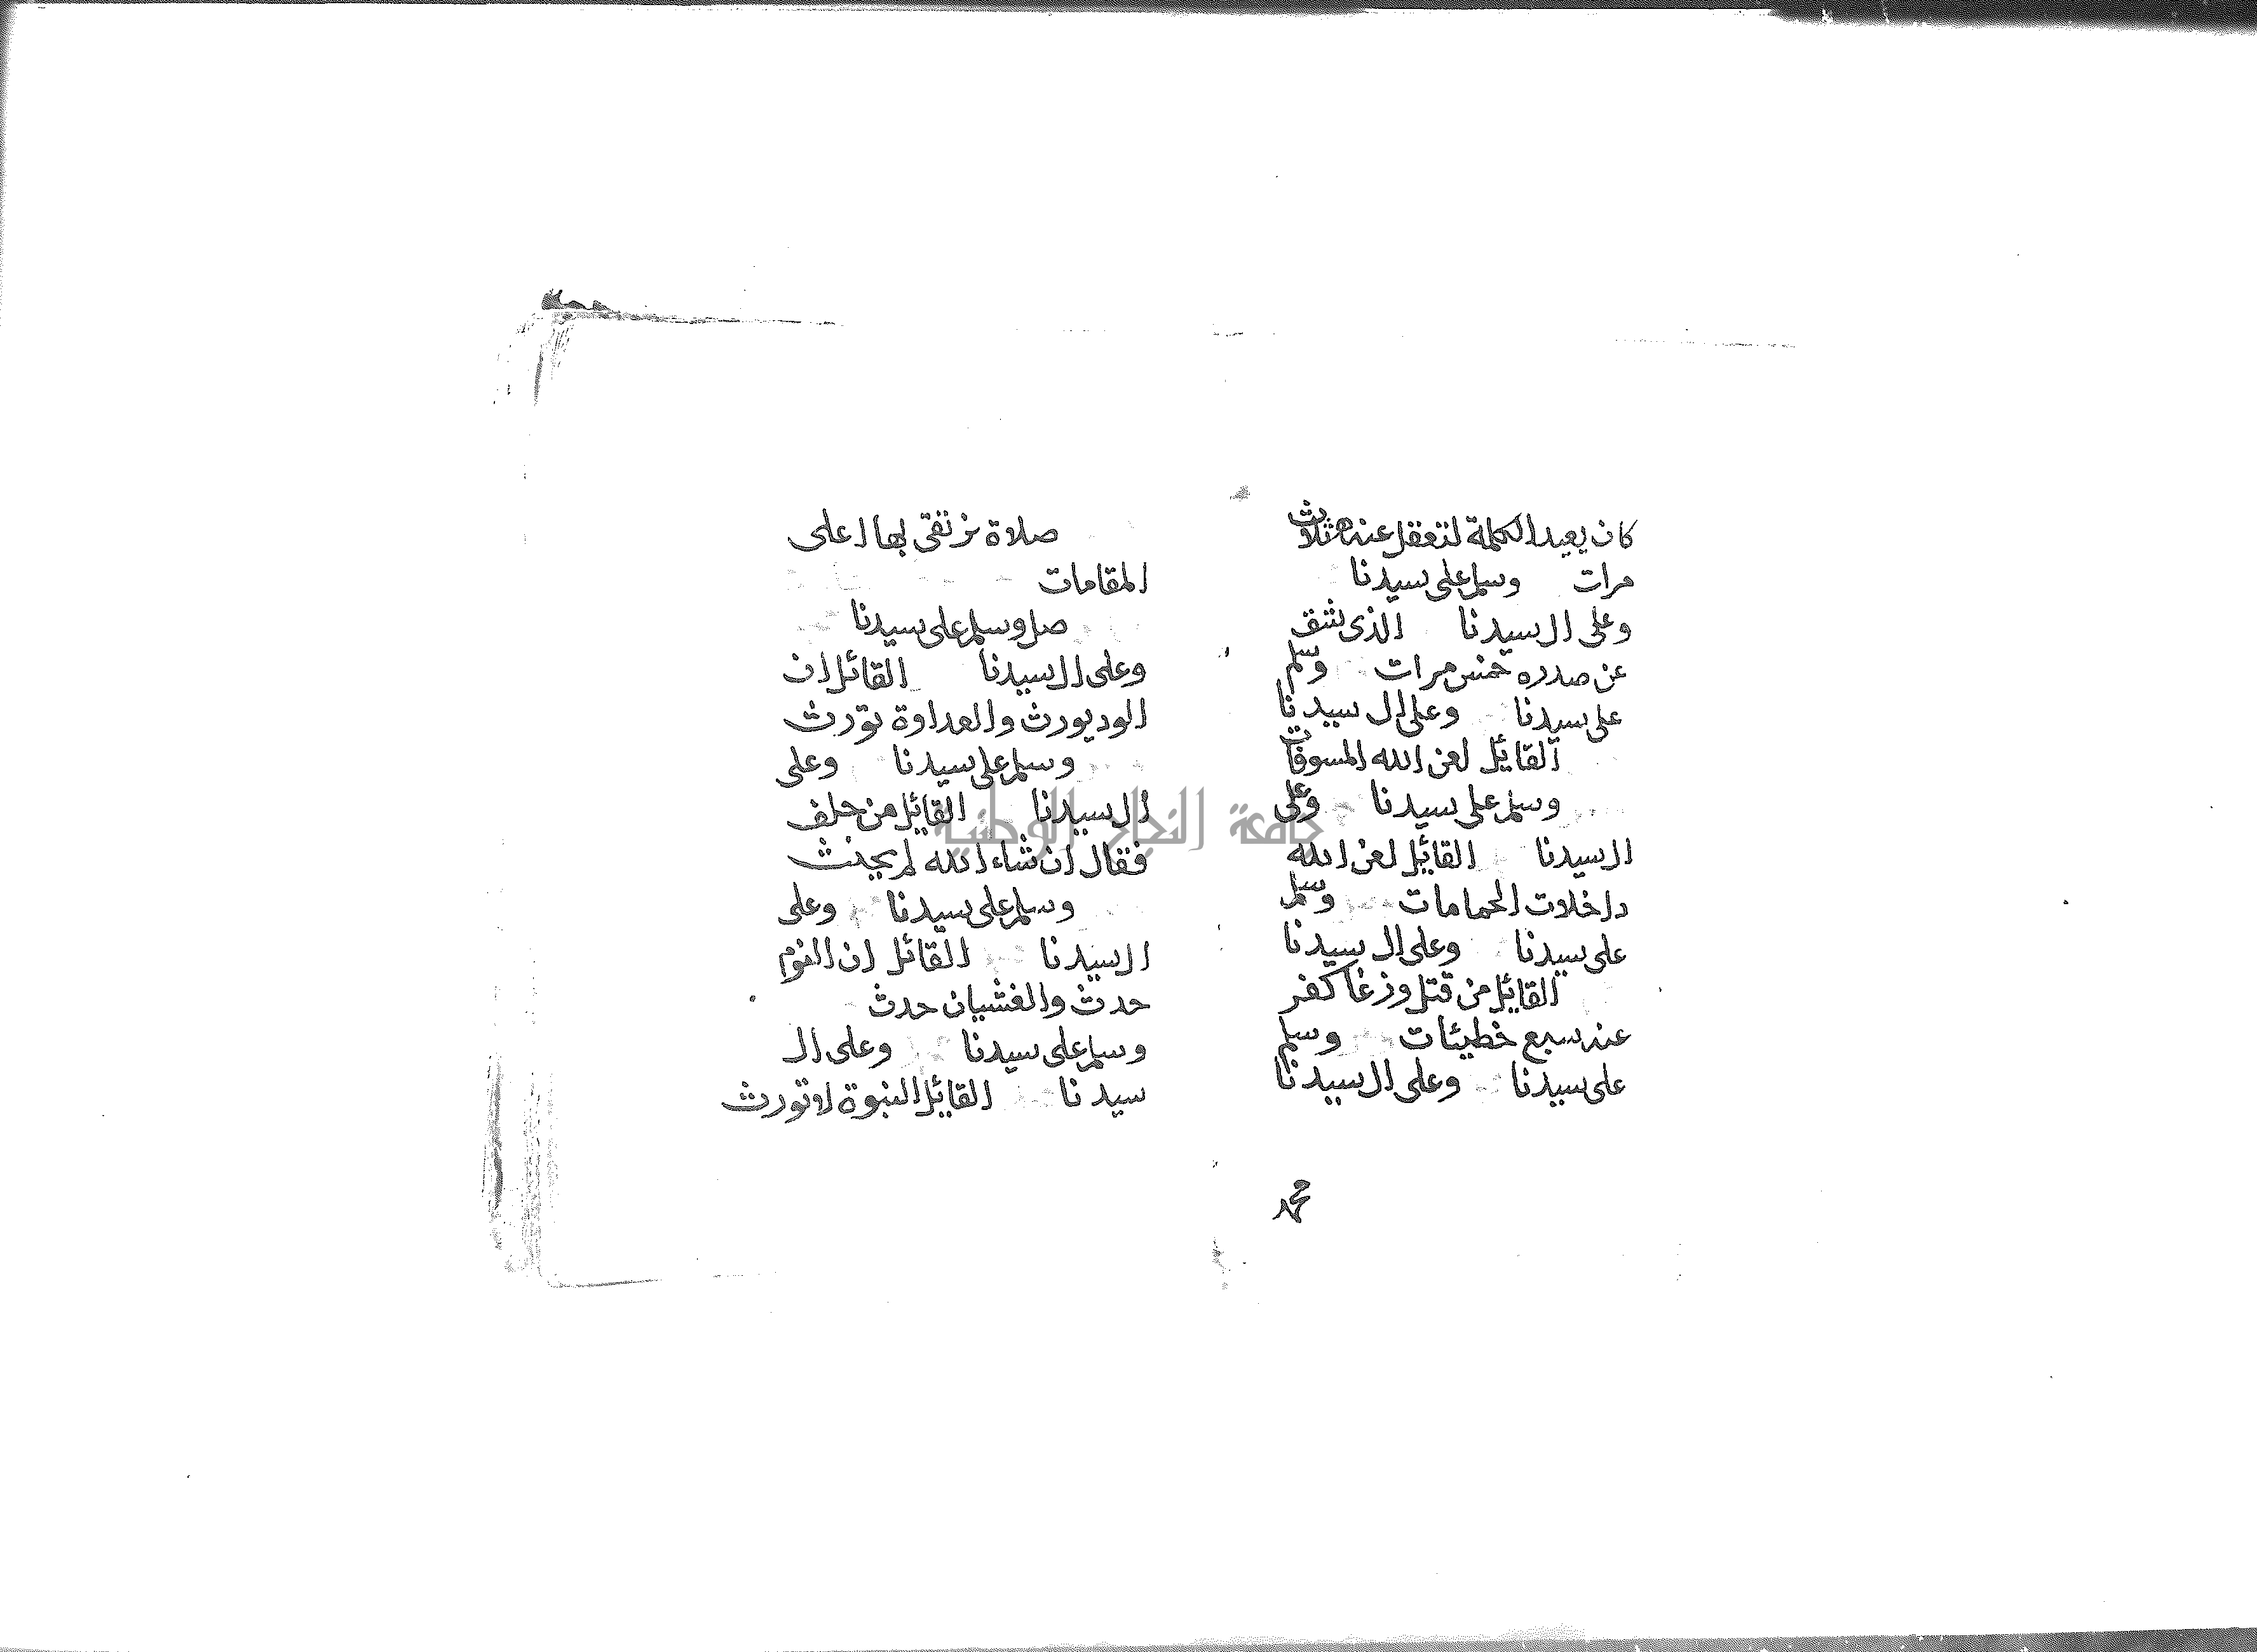 كان يعيد الكلمة لتعقل عنه ثلاث
مرات وسلم على سيدنا
وعلى ال سيدنا الذى شق
عن صدره خمس مرات وسلم
على سيدنا وعلى ال سيدنا
القايل لعن الله المسوفات
وسلم على سيدنا وعلى
ال سيدنا القايل لعن الله
داخلات الحمامات وسلم
على سيدنا وعلى ال سيدنا
القايل من قتل وزغا كفر
عنه سبع خطيئات وسلم
على سيدنا وعلى ال سيدنا
محمد
صلاة نرتقى بها اعلى
المقامات
صل وسلم على سيدنا
وعلى ال سيدنا القائل ان
الود يورث والعداوة تورث
وسلم على سيدنا وعلى
ال سيدنا القايل من حلف
فقال ان شاء الله لم يحنث
وسلم على سيدنا وعلى
ال سيدنا القائل ان النوم
حدث والغشيان حدث
وسلم على سيدنا وعلى ال
سيدنا القايل النبوة لا تورث
جامعة النجاح الوطنية